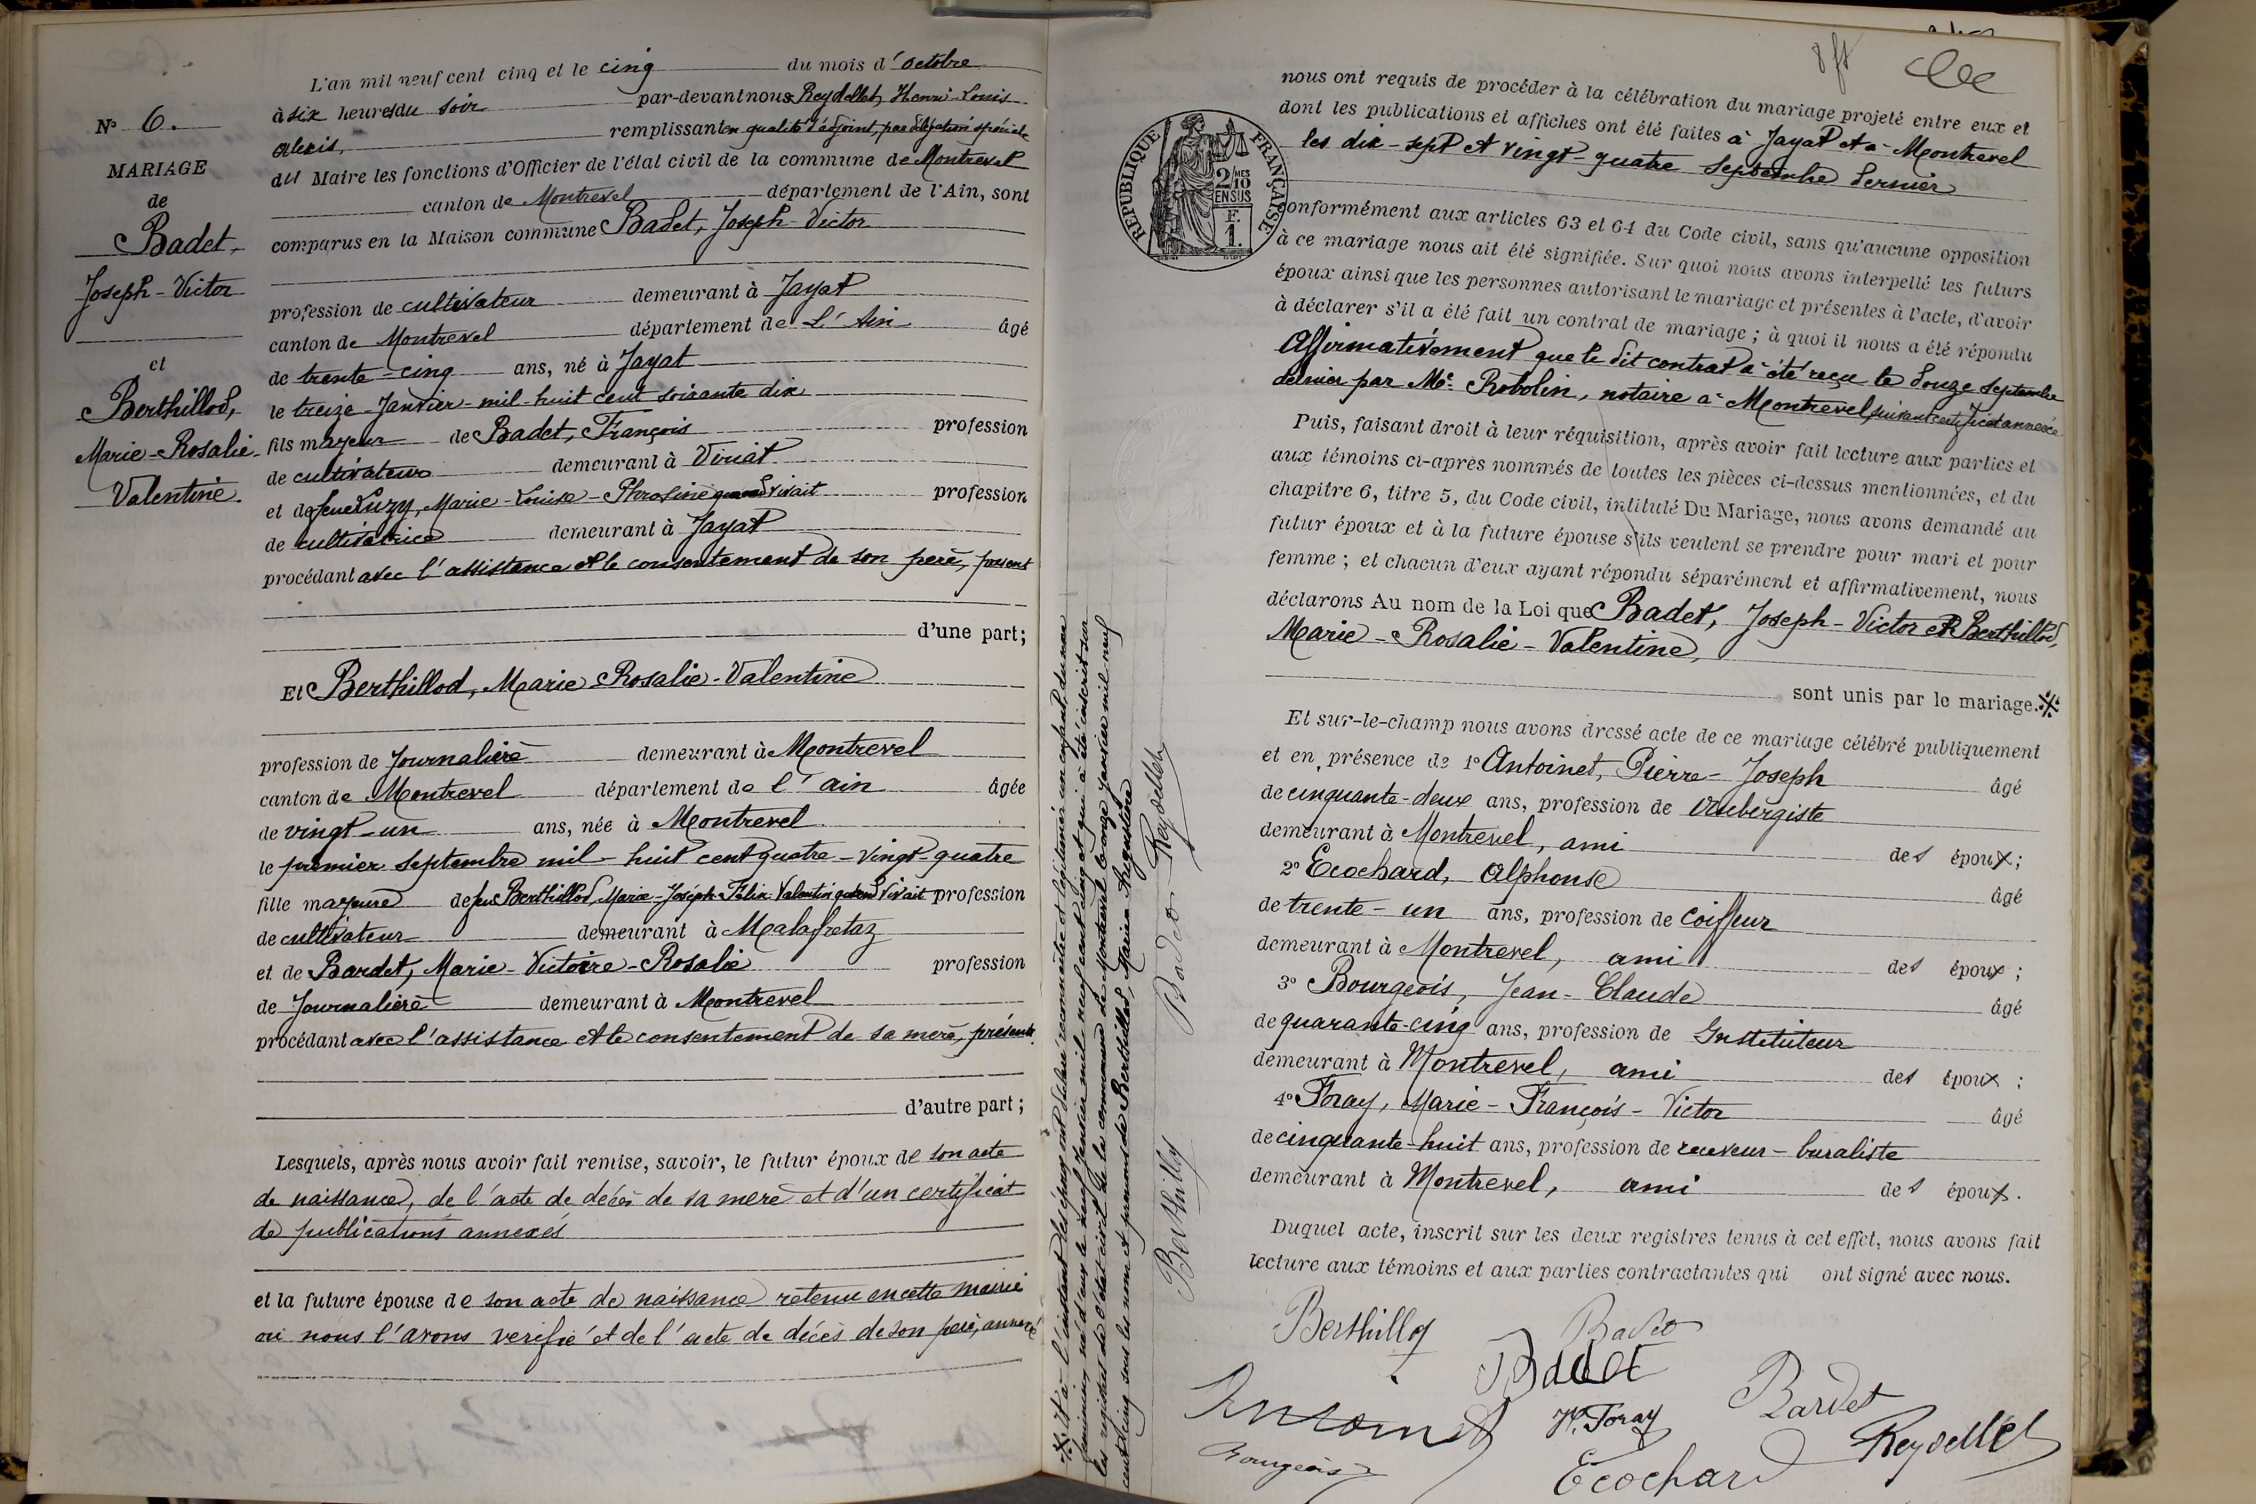 N° 6.
MARIAGE
de
Badet,
Joseph-Victor
et
Berthillod,
Marie-Rosalie-
Valentine.
L'an mil neuf cent cinq et le cinq du mois d'octobre
à six heures du soir par-devant nous Reydellet, Henri-Louis
alexis, remplissant en qualité d'adjoint, par délégation spéciale
du Maire les fonctions d'Officier de l'état civil de la commune de Montrevel
canton de Montrevel département de l'Ain, sont
comparus en la Maison commune Badet, Joseph-Victor
profession de cultivateur demeurant à Jayat
canton de Montrevel département de L'Ain âgé
de trente-cinq ans, né à Jayat
le treize Janvier mil huit cent soixante dix
fils majeur de Badet, François profession
de cultivateur demeurant à Viriat
et de feue Luzy, Marie-Louise-Phrosine quand vivait profession
de cultivatrice demeurant à Jayat
procédant avec l'assistance et le consentement de son père, présent
d'une part;
Et Berthillod, Marie-Rosalie-Valentine
profession de Journalière demeurant à Montrevel
canton de Montrevel département de l'ain âgée
de vingt-un ans, née à Montrevel
le premier septembre mil huit cent quatre-vingt-quatre
fille majeure de feu Berthillod, Marie-Joseph-Félix-Valentin quand vivait profession
de cultivateur demeurant à Malafretaz
et de Bardet, Marie-Victoire-Rosalie profession
de Journalière demeurant à Montrevel
procédant avec l'assistance et le consentement de sa mère, présente
d'autre part;
Lesquels, après nous avoir fait remise, savoir, le futur époux de son acte
de naissance, de l'acte de décès de sa mère et d'un certificat
de publications annexés
et la future épouse de son acte de naissance retenu en cette mairie
où nous l'avons vérifié et de l'acte de décès de son père, annexé
※ Et à l'instant les époux ont déclaré reconnaître et légitimer un enfant du sexe
féminin, né d'eux le neuf Janvier mil neuf cent cinq et qui a été inscrit sur
les registres de l'état civil de la commune de Montrevel le onze Janvier mil neuf
cent cinq sous les nom et prénoms de Berthillod, Maria Augustine
Berthillod Badet Reydellet
RÉPUBLIQUE FRANÇAISE
2/10MES
EN SUS
F.
1.
nous ont requis de procéder à la célébration du mariage projeté entre eux et
dont les publications et affiches ont été faites à Jayat et à Montrevel
les dix-sept et vingt-quatre septembre dernier
conformément aux articles 63 et 64 du Code civil, sans qu'aucune opposition
à ce mariage nous ait été signifiée. Sur quoi nous avons interpellé les futurs
époux ainsi que les personnes autorisant le mariage et présentes à l'acte, d'avoir
à déclarer s'il a été fait un contrat de mariage; à quoi il nous a été répondu
Affirmativement que le dit contrat a été reçu le douze septembre
dernier par Me Robolin, notaire à Montrevel, suivant certificat annexé
Puis, faisant droit à leur réquisition, après avoir fait lecture aux parties et
aux témoins ci-après nommés de toutes les pièces ci-dessus mentionnées, et du
chapitre 6, titre 5, du Code civil, intitulé Du Mariage, nous avons demandé au
futur époux et à la future épouse s'ils veulent se prendre pour mari et pour
femme; et chacun d'eux ayant répondu séparément et affirmativement, nous
déclarons Au nom de la Loi que Badet, Joseph-Victor et Berthillod,
Marie-Rosalie-Valentine,
sont unis par le mariage.※
Et sur-le-champ nous avons dressé acte de ce mariage célébré publiquement
et en présence de 1° Antoinet, Pierre-Joseph âgé
de cinquante-deux ans, profession de Aubergiste
demeurant à Montrevel, ami des époux;
2° Ecochard, Alphonse âgé
de trente-un ans, profession de coiffeur
demeurant à Montrevel, ami des époux;
3° Bourgeois, Jean-Claude âgé
de quarante-cinq ans, profession de Instituteur
demeurant à Montrevel, ami des époux;
4° Foray, Marie-François-Victor âgé
de cinquante-huit ans, profession de receveur-buraliste
demeurant à Montrevel, ami des époux.
Duquel acte, inscrit sur les deux registres tenus à cet effet, nous avons fait
lecture aux témoins et aux parties contractantes qui ont signé avec nous.
Berthillod Badet
Badet
Antoinet V. Foray Bardet
Bourgeois Ecochard Reydellet